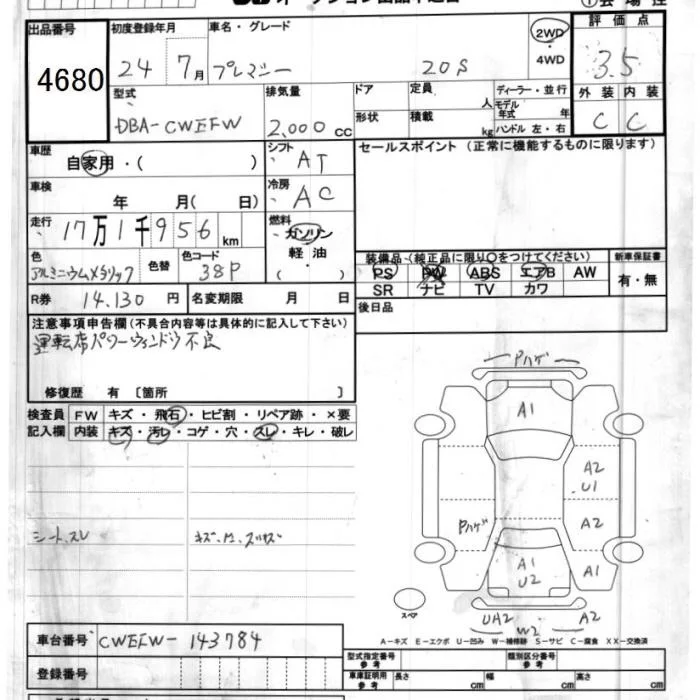 出品番号 4680
初度登録年月 24 7月
車名・グレード プレマシー 20S
2WD・4WD
評価点 3.5
型式 DBA-CWEFW
排気量 2,000 cc
ドア
形状
定員 人
積載 kg
ディーラー・並行
モデル年式 年
ハンドル 左・右
外装 内装
C C
車歴 自家用・( )
シフト AT
セールスポイント (正常に機能するものに限ります)
車検 年 月( 日)
冷房 AC
走行 17万1千956 km
燃料 ガソリン 軽油 ( )
色 アルミニウムメタリック
色替
色コード 38P
装備品 (純正品に限り○をつけてください)
新車保証書
PS PW ABS エアB AW
有・無
SR ナビ TV カワ
R券 14.130 円
名変期限 月 日
後日品
注意事項申告欄(不具合内容等は具体的に記入して下さい)
運転席パワーウィンドウ不良
修復歴 有 〔箇所 〕
検査員 FW キズ・飛石・ヒビ割・リペア跡・×要
記入欄 内装 キズ・汚レ・コゲ・穴・スレ・キレ・破レ
シート、スレ
Pハゲ
A1
A2
U1
Pハゲ
A2
A1
U2
A1
スペア
UA2 W2 A2
A-キズ E-エクボ U-凹み W-補修跡 S-サビ C-腐食 XX-交換済
車台番号 CWEFW-143784
登録番号
型式指定番号 参考
類別区分番号 参考
車庫証明用 参考 長さ cm 幅 cm 高さ cm